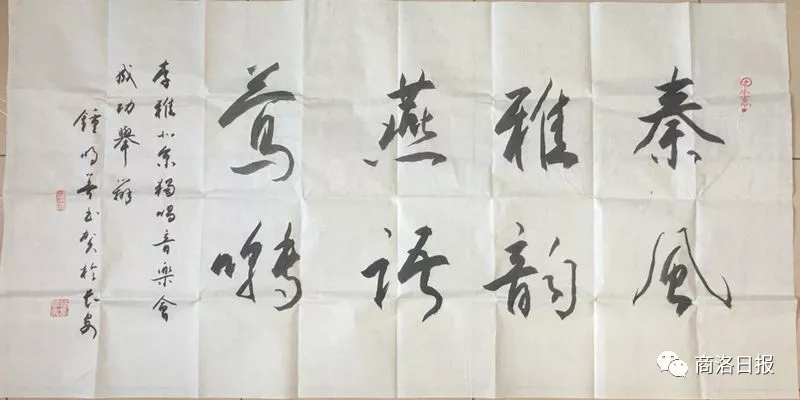 秦風
雅韻
燕語
莺
李雅小獨唱音樂會
成功舉辦
鍾明善書賀於長安
商洛日报